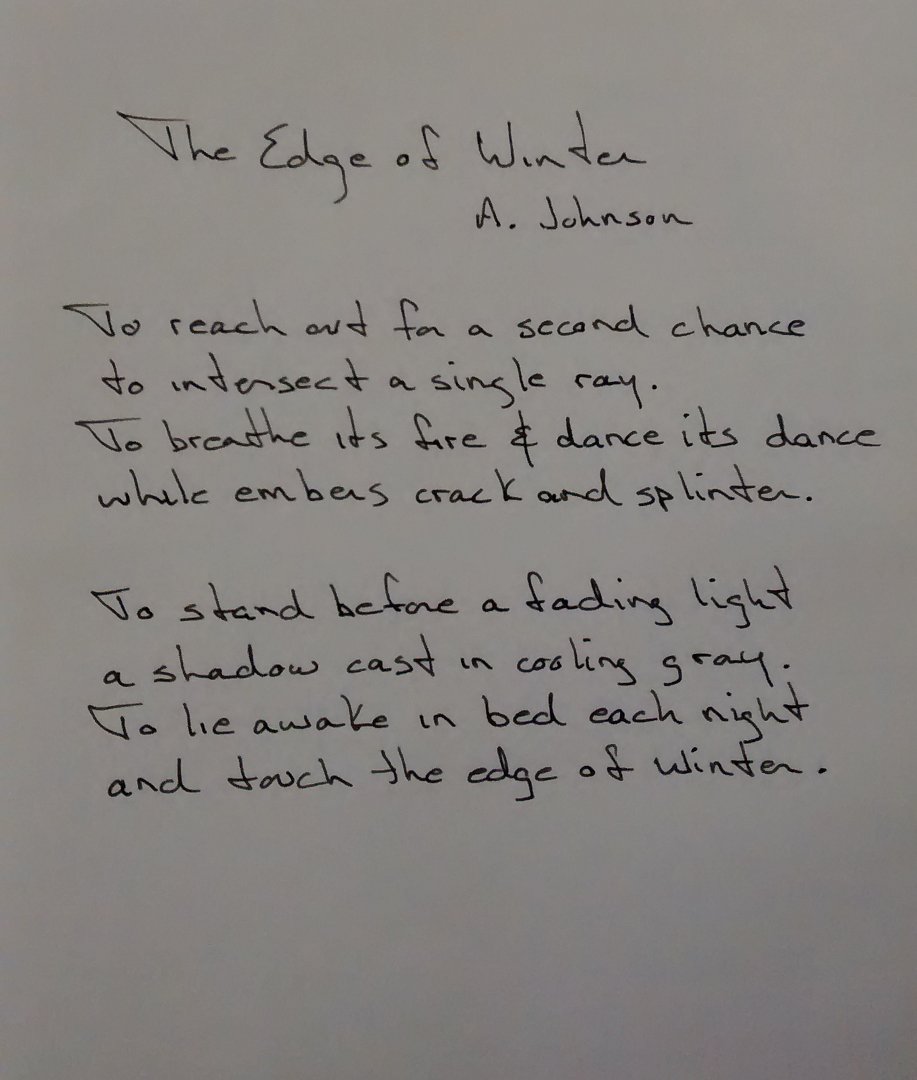 The Edge of Winter
A. Johnson
To reach out for a second chance
to intersect a single ray.
To breathe its fire & dance its dance
while embers crack and splinter.
To stand before a fading light
a shadow cast in cooling gray.
To lie awake in bed each night
and touch the edge of winter.